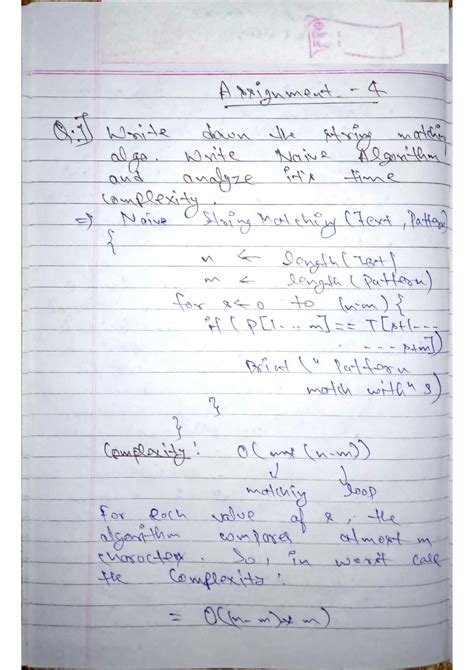 Assignment - 4
Q.1] Write down the string matching
algo. Write Naive Algorithm
and analyze it's time
complexity.
=> Naive String Matching (Text, Pattern)
{
n ← length (Text)
m ← length (Pattern)
for s ← 0 to (n-m) {
if (P[1...m] == T[s+1...
...s+m])
Print ("Pattern
match with" s)
}
}
Complexity : O(m* (n-m))
matching loop
For each value of s, the
algorithm compares atmost m
character. So, in worst case
the Complexity :
= O((n-m)* m)